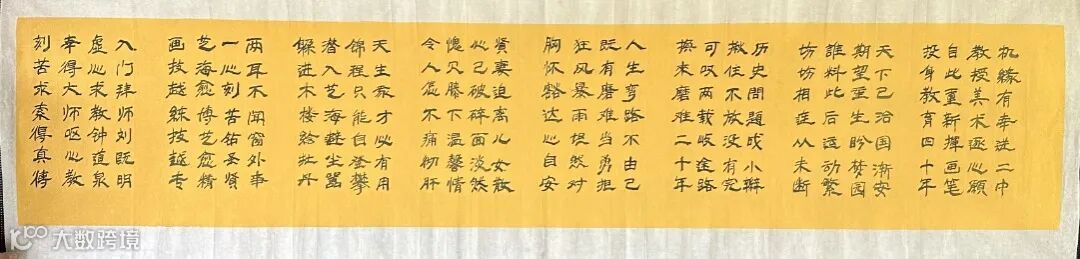 机缘有幸进二中
教授美术遂心愿
自此重新挥画笔
投身教育四十年
天下已治国渐安
期望重生盼梦园
谁料此后运动繁
坊坊相连从未断
历史问题成小辫
揪住不放没有完
可叹两载岐途路
换来磨难二十年
人生弯路不由己
既有磨难当勇担
狂风暴雨坦然对
胸怀豁达心自安
贤妻迫离儿女散
心已破碎面淡然
愧欠膝下温馨情
令人怎不痛彻肝
天生我才必有用
锦程只能自登攀
潜入艺海避尘嚣
躲进木楼绘牡丹
两耳不闻窗外事
一心刻苦钻圣贤
艺海愈博艺愈精
画技越练技越专
入门拜师刘既明
虚心求教钟道泉
幸得大师呕心教
刻苦求索得真传
大数跨境